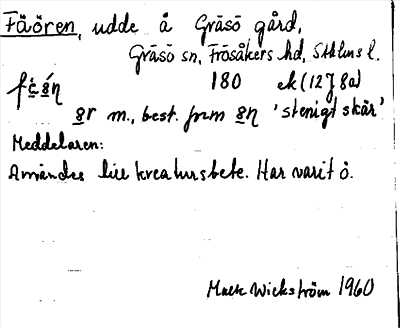 Fäören, udde å Gräsö gård,
Gräsö sn, Frösåkers hd, Sthlms l.
180 ek (12J8a)
ör m., best. form ön 'stenigt skär'
Meddelaren:
Användes till kreatursbete. Har varit ö.
Mats Wickström 1960